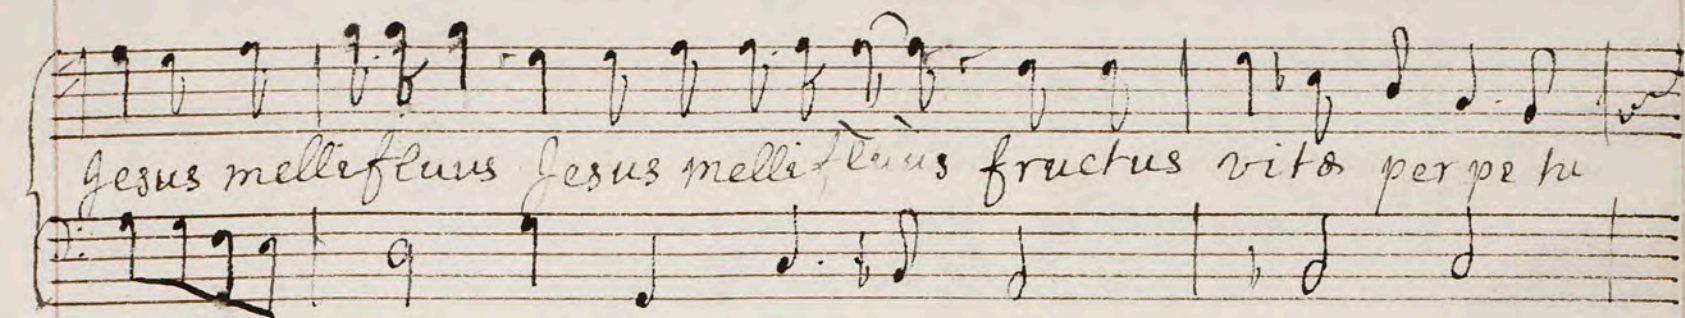 Jesus mellifluus Jesus mellifluus fructus vitæ per pe tu